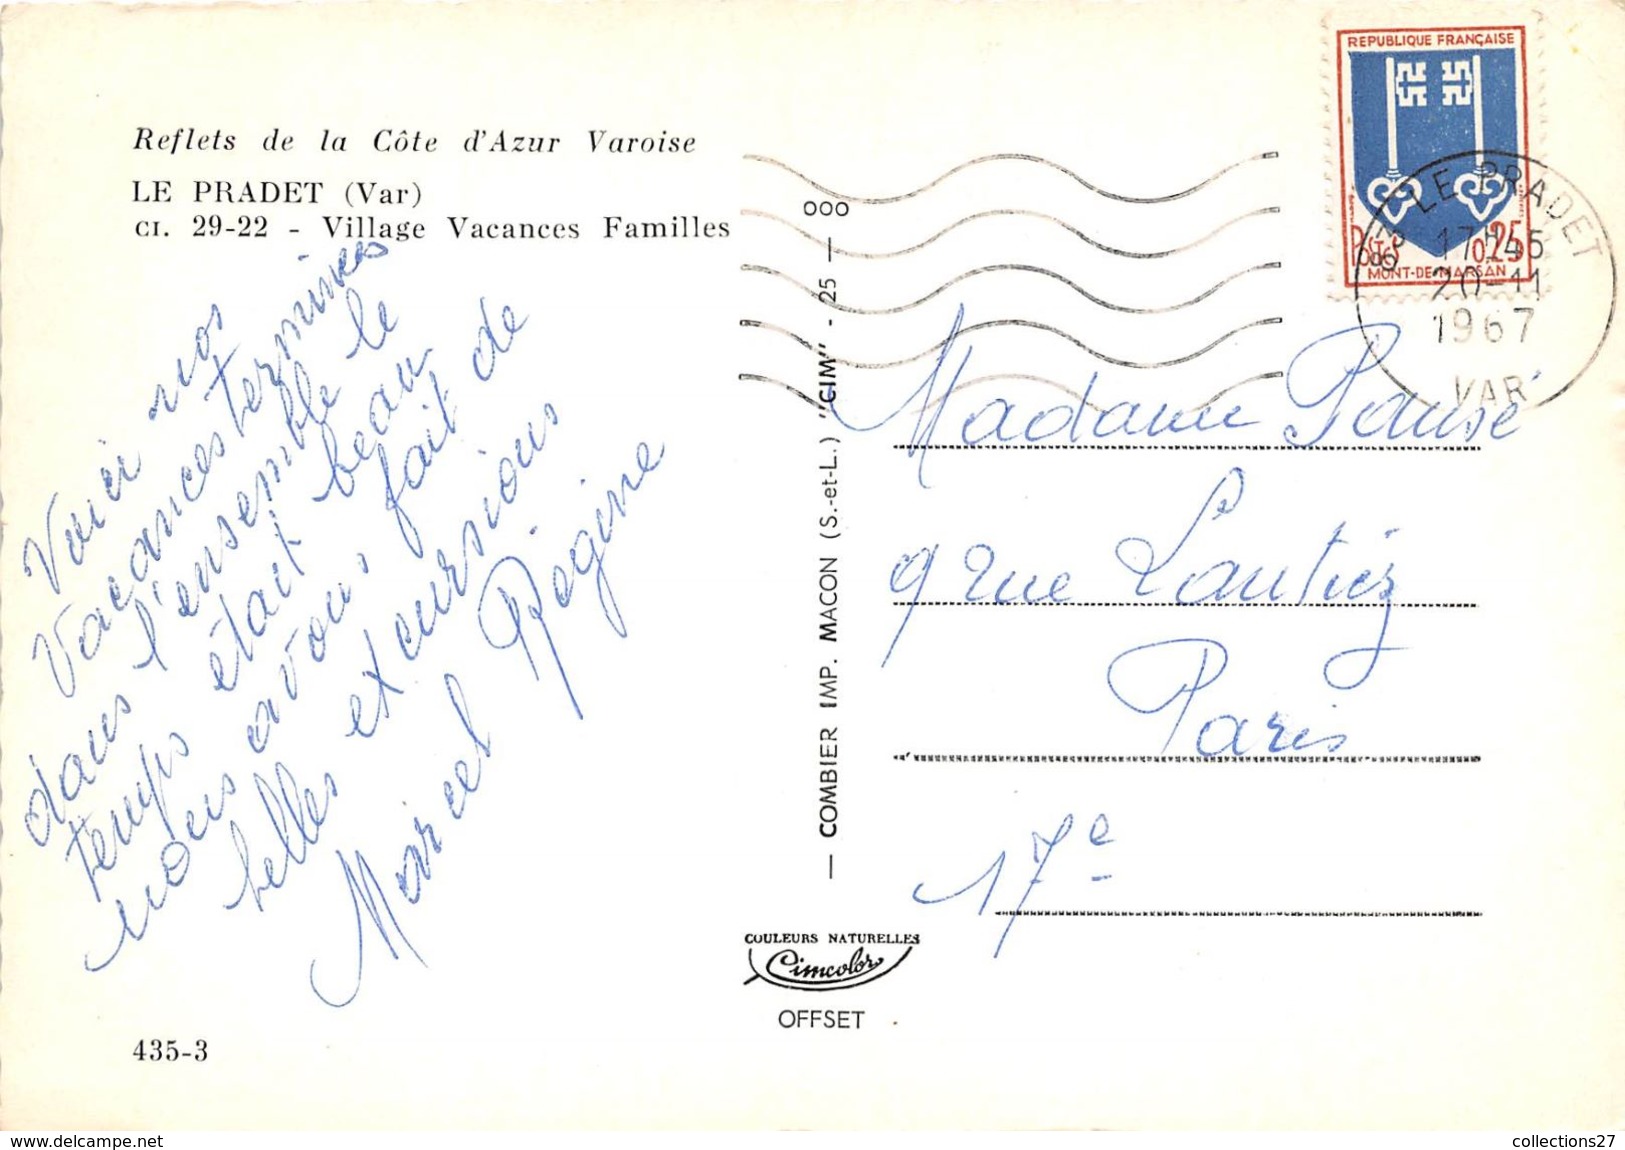 Reflets de la Côte d'Azur Varoise
LE PRADET (Var)
CI. 29-22 - Village Vacances Familles
Voici nos
vacances terminées
dans l'ensemble le
temps était beau
nous avons fait de
belles excursions
Marcel Régine
435-3
— COMBIER IMP. MACON (S.-et-L.) "CIM" - 25 —
000
COULEURS NATURELLES
Cimcolor
OFFSET
REPUBLIQUE FRANÇAISE
POSTES 0,25
MONT-DE-MARSAN
83 LE PRADET
17H45
20-11
1967
VAR
Madame
9 rue Lantiez
Paris
17e
www.delcampe.net
collections27